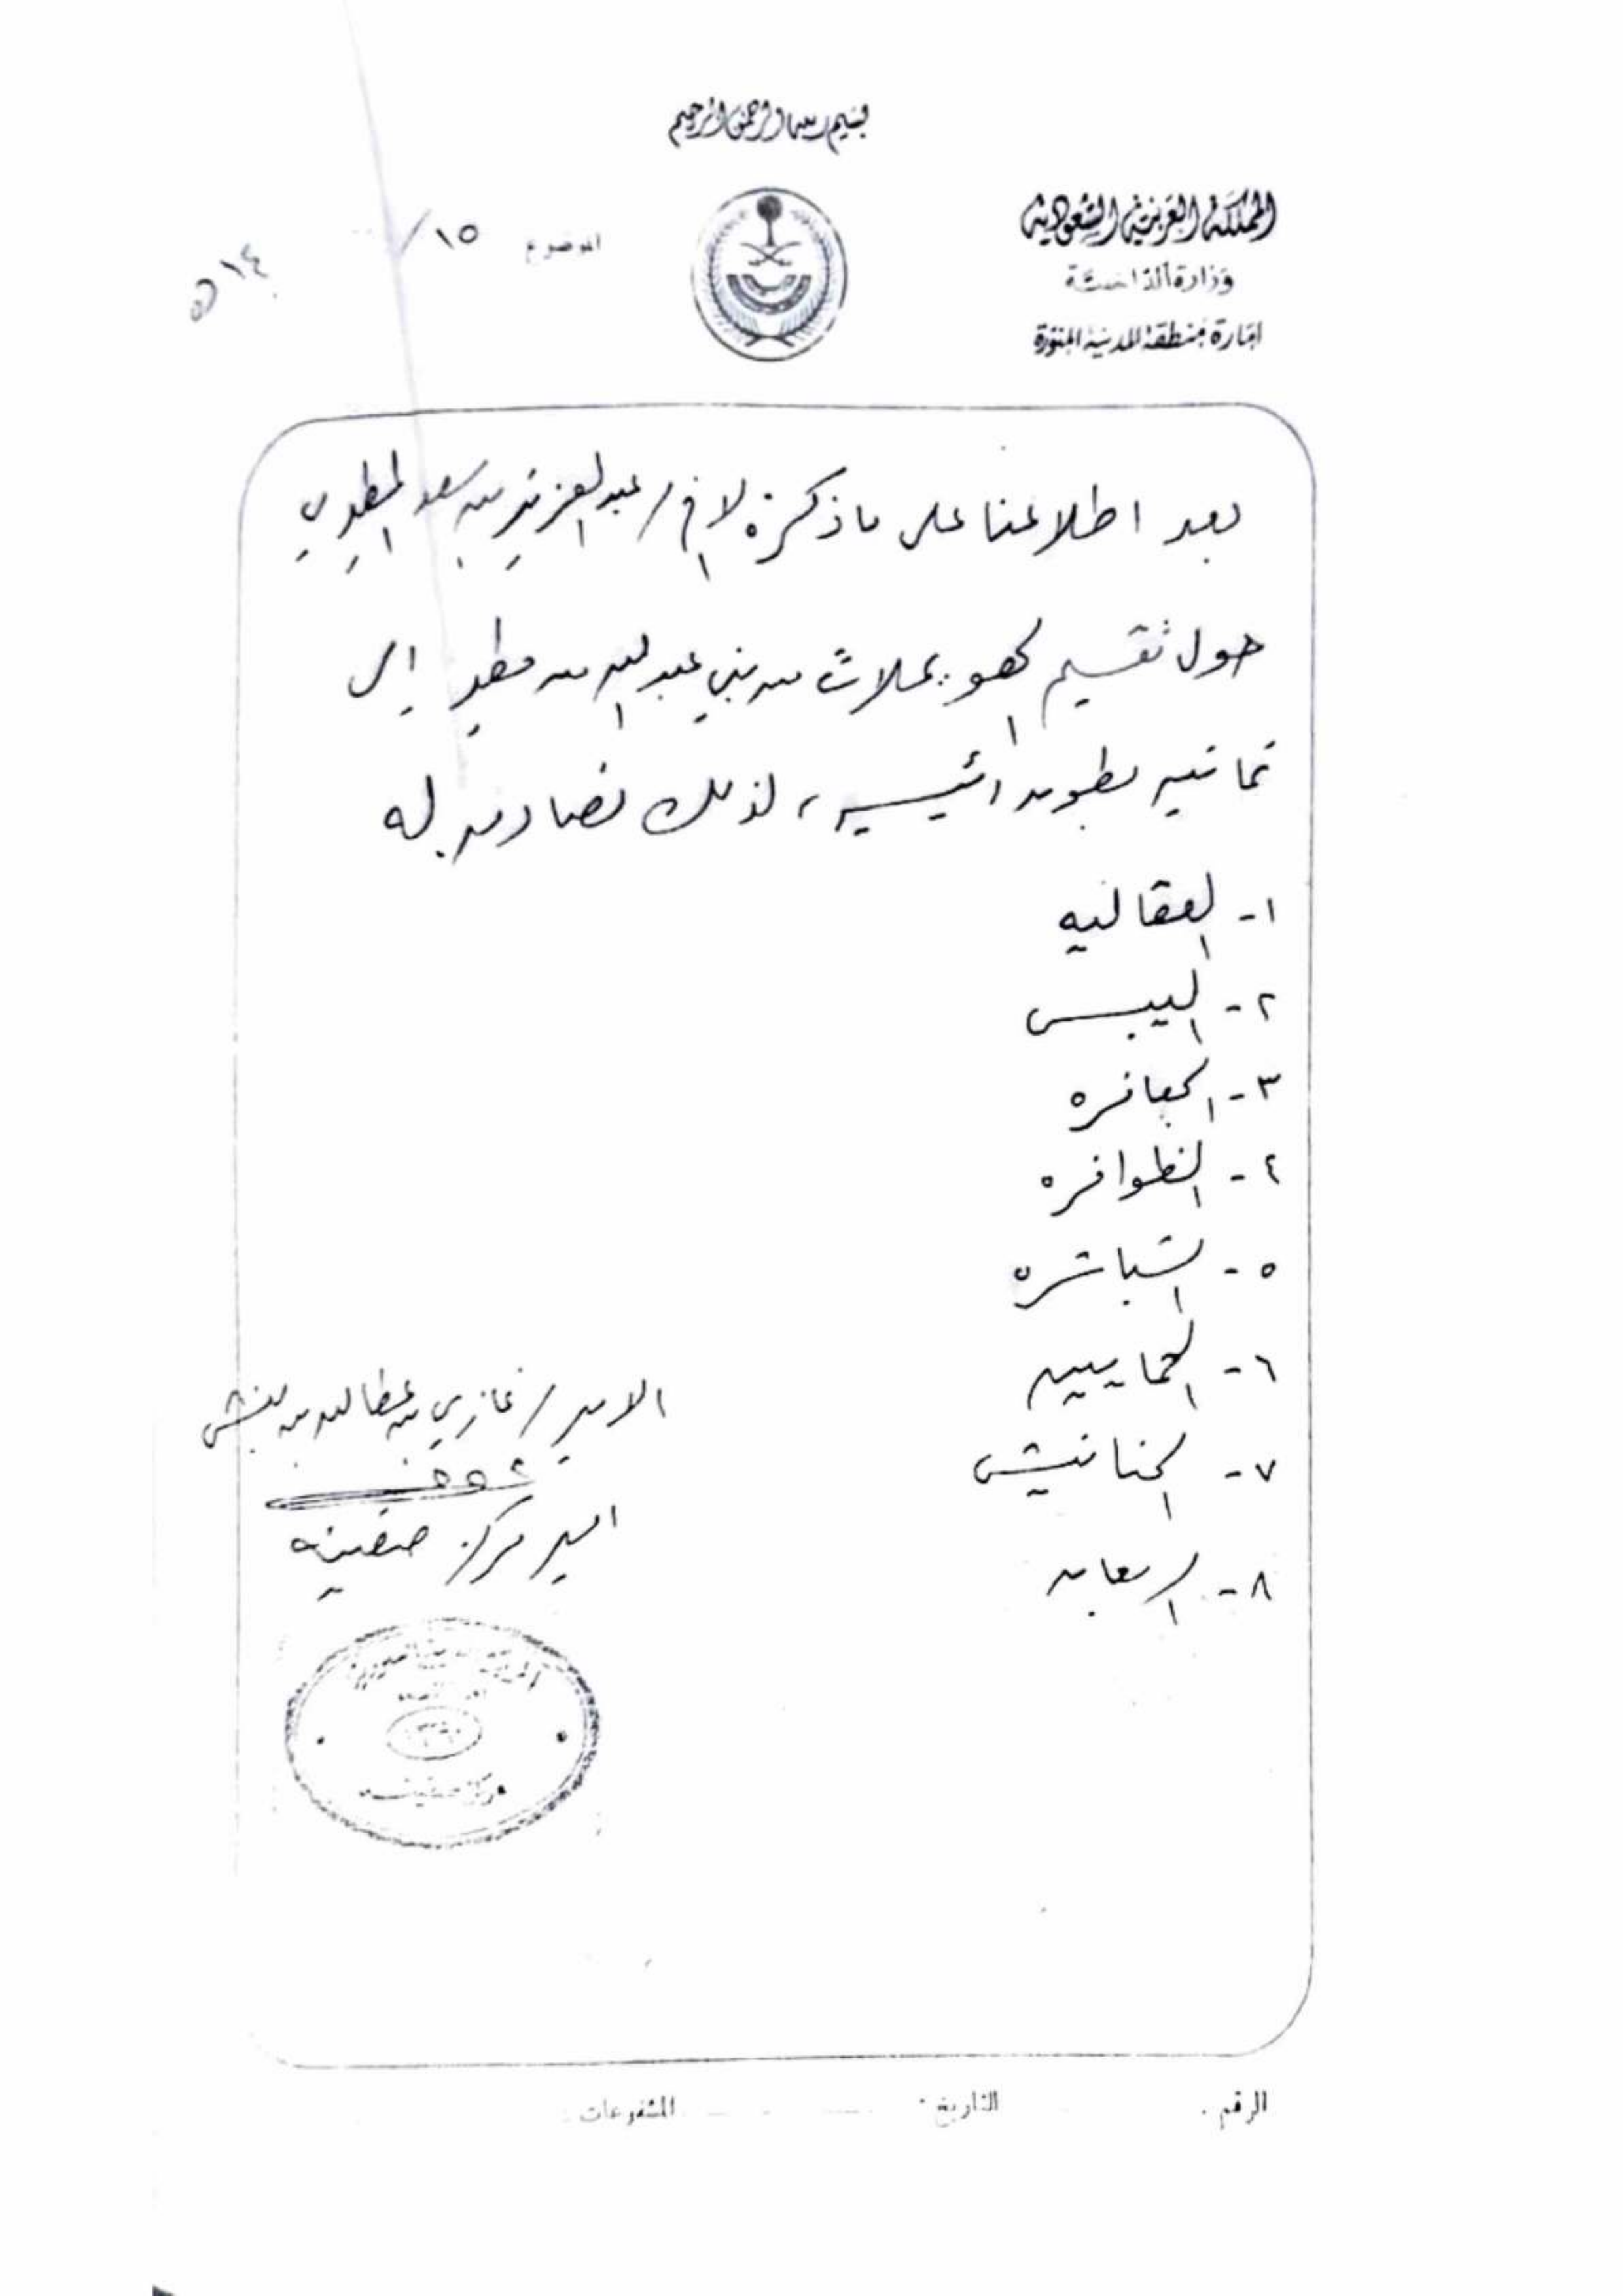 بسم الله الرحمن الرحيم
المملكة العربية السعودية
وزارة الداخلية
امارة منطقة المدينة المنورة
الموضوع ١٥ /
١٤ هـ
بعد اطلاعنا على ما ذكره الاخ / عبدالعزيز بن سعد المطيري
حول تقسيم الصعو بملاث من بني عبدالله من مطير إلى
ثمانية بطون رئيسيه ، لذلك نصادق له
١- العقاليه
٢- اليبس
٣- الجعافره
٤- الظوافره
٥- الشباشره
٦- الحمايين
٧- الحنانيش
٨-
الامير / غازي بن عطاالله بن
امير مركز صفينه
مركز صفينه
الرقم . التاريخ . المشفوعات